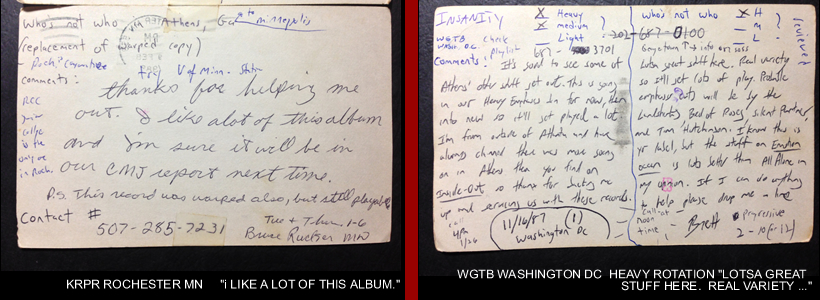 who's not who Athens, Ga to minneapolis
(replacement of warped copy)
- Roch? Committee
comments: free U of Minn. Station
thanks for helping me
out. I like alot of this album
and i'm sure it will be in
our CMJ report next time.
RCC
junior
college
is the
only one
in Roch.
P.S. This record was warped also, but still playable
Contact #
507-285-7231
Tue + Thur. 1-6
Bruce MN
INSANITY
X Heavy
medium
Light
?
WGTB check
Wash. DC. playlist
687-3701
comments: It's good to see some of
Athens' other stuff get out. This is going
in our Heavy Emphasis bin for now, then
into new so it'll get played a lot.
I'm from outside of Atlanta and have
always there was more going
on in Athens than you find on
Inside-Out, so thanks for
up and us with these records.
11/16/87 (1)
Washington DC
who's not who X H
M
L
?
reviewed
202-687-0100
into our
Lotsa great stuff here. Real variety
so it'll get lots of play. Probable
emphasis cuts will be by the
Bed of Roses, Silent Partner,
and Tom Hutchinson. I know this is
yr label, but the stuff on Emotion
ocean is lots better than All Alone in
my opinion. If I can do anything
to help please drop me a line
call at
noon
time
- Brett
progressive
2-10 (-12)
call
4 PM
1/26
KRPR ROCHESTER MN "i LIKE A LOT OF THIS ALBUM."
WGTB WASHINGTON DC HEAVY ROTATION "LOTSA GREAT
STUFF HERE. REAL VARIETY ..."